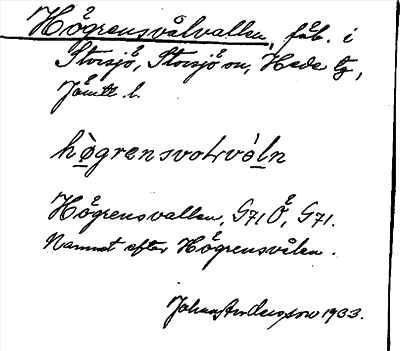 Högrensvålvallen, fäb. i
Storsjö, Storsjö sn, Hede tg,
Jämtl. l.
hògrensvolvòln
Högrensvallen, G71Ö, G71.
Namnet efter Högrensvålen.
Johan Anderzson 1933.